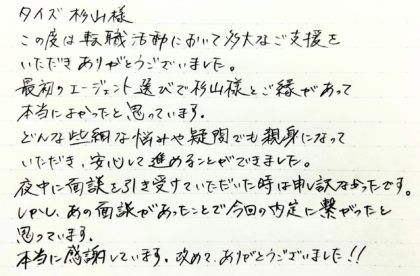 タイズ 杉山様
この度は転職活動において多大なご支援を
いただきありがとうございました。
最初のエージェント選びで杉山様とご縁があって
本当によかったと思っています。
どんな些細な悩みや疑問でも親身になって
いただき、安心して進めることができました。
夜中に面談を引き受けていただいた時は申し訳なかったです。
しかし、あの面談があったことで今回の内定に繋がったと
思っています。
本当に感謝しています。改めて、ありがとうございました!!